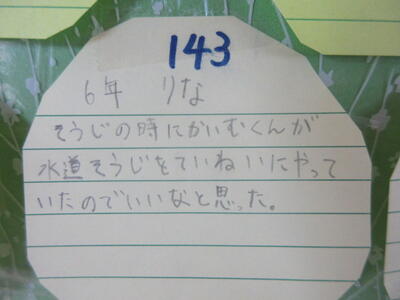 143
6年 りな
そうじの時にかいむくんが
水道そうじをていねいにやって
いたのでいいなと思った。